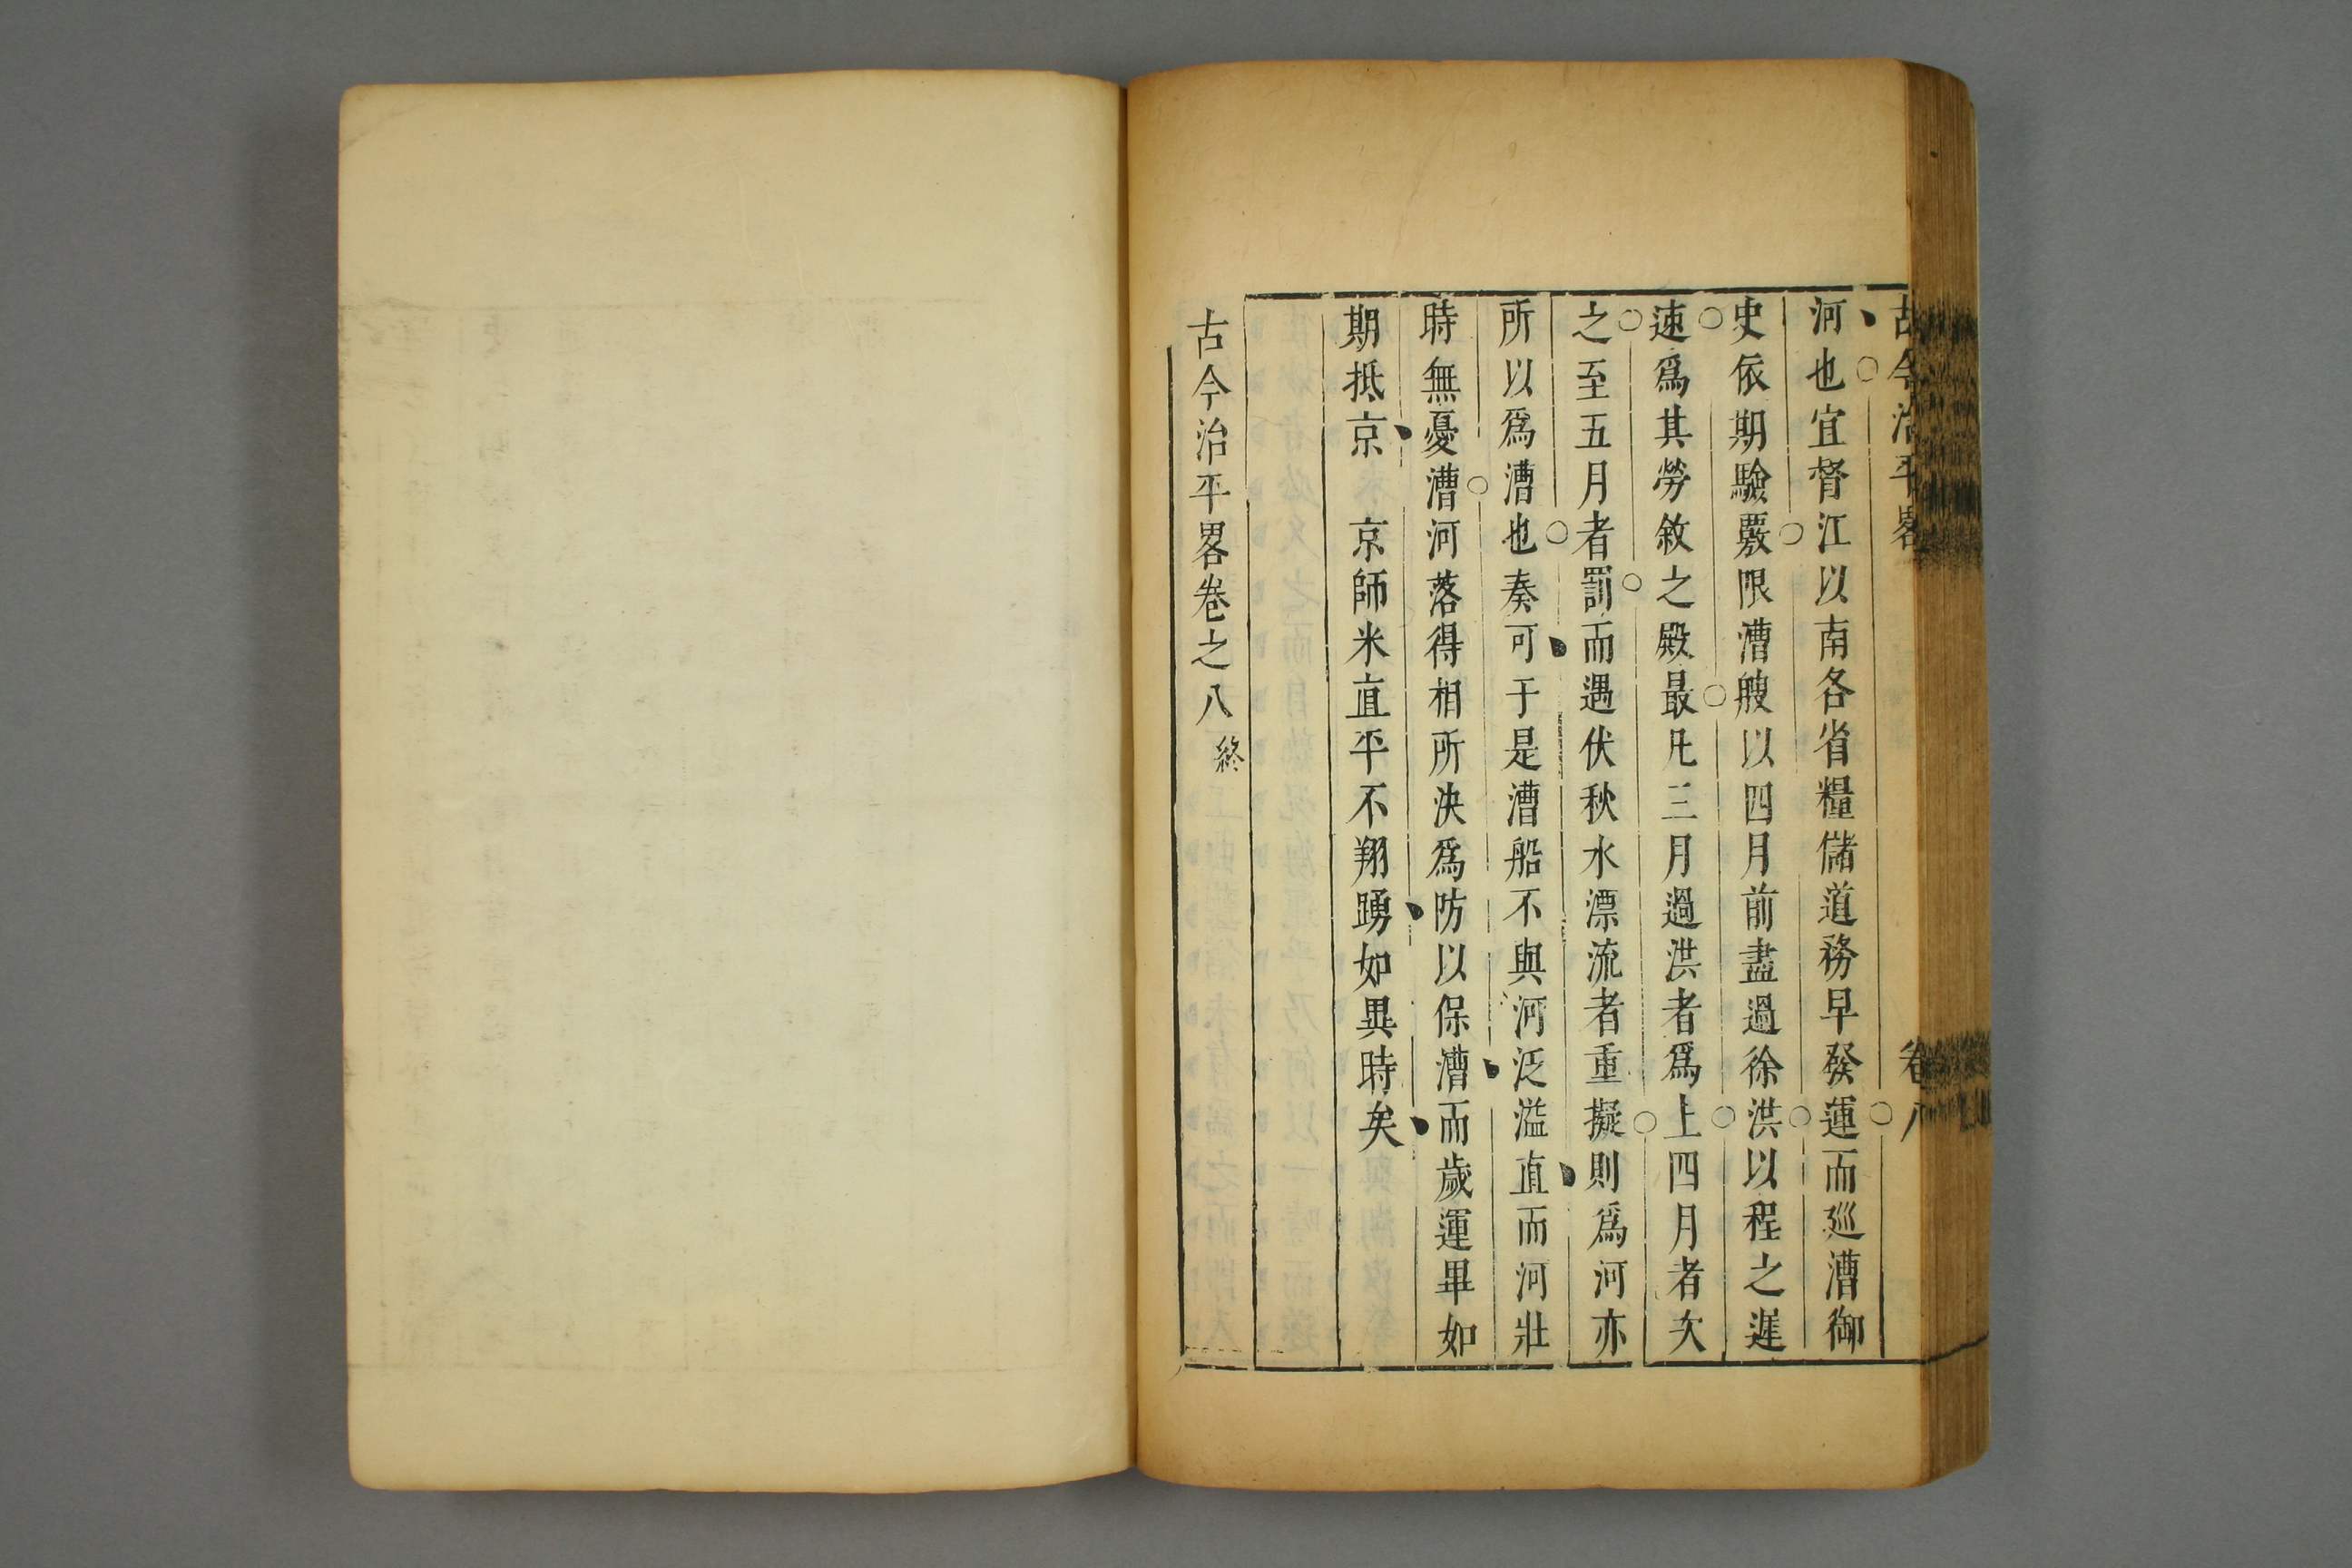 古今治平畧 卷八
河也宜督江以南各省糧儲道務早發運而廵漕御
史依期驗覈限漕艘以四月前盡過徐洪以程之遲
速爲其勞敘之殿最凡三月過洪者爲上四月者次
之至五月者罰而遇伏秋水漂流者重擬則爲河亦
所以爲漕也奏可于是漕船不與河泛溢直而河壯
時無憂漕河落得相所決爲防以保漕而歲運畢如
期抵京 京師米直平不翔踴如異時矣
古今治平畧卷之八 終